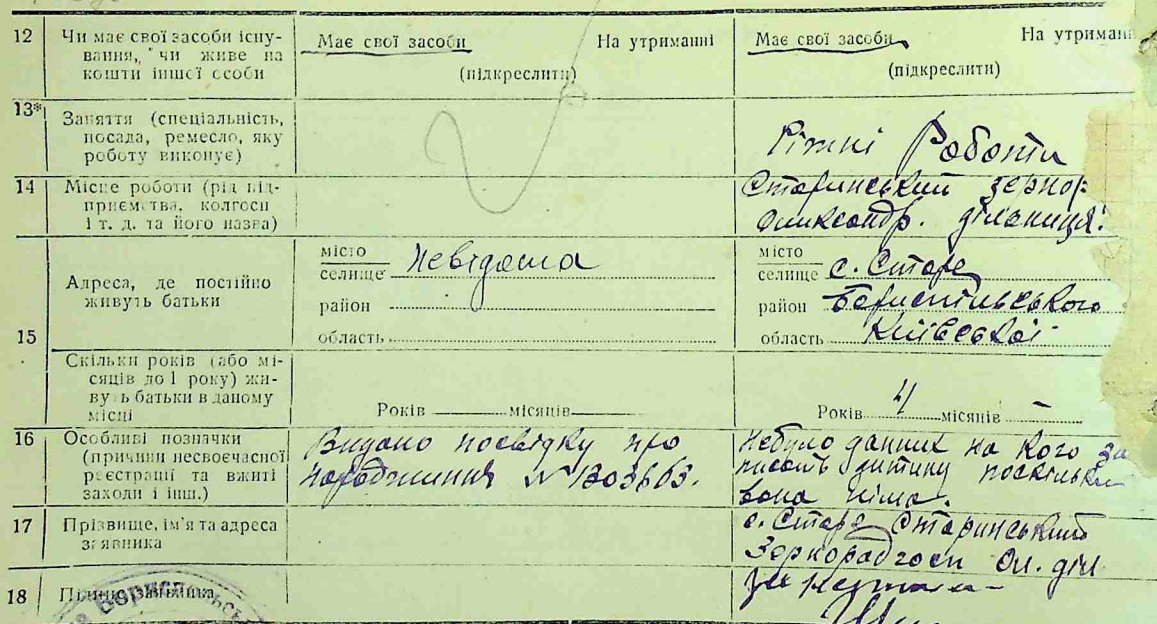 12 Чи має свої засоби існу-
вання, чи живе на
кошти іншої особи
Має свої засоби На утриманні
(підкреслити)
Має свої засоби На утриманн
(підкреслити)
13* Заняття (спеціальність,
посада, ремесло, яку
роботу виконує)
Ріжні Роботи
14 Місце роботи (рід під-
приємства, колгосп
і т. д. та його назва)
Старинський зернор.
Олександр. дільниця
15 Адреса, де постійно
живуть батьки
місто
селище Невідома
район
область
місто
селище с. Старе
район Бориспільського
область Київської
Скільки років (або мі-
сяців до 1 року) жи-
вуть батьки в даному
місці
Років місяців
Років 4 місяців –
16 Особливі позначки
(причини несвоєчасної
реєстрації та вжиті
заходи і інш.)
Видано посвідку про
народження № 1303663.
Небуло данних на кого за
писать дитину поскільки
вона німа.
17 Прізвище, ім'я та адреса
заявника
с. Старе Старинський
Зернорадгосп Ол. діл.
18 Підпис заявника
Бориспільсь